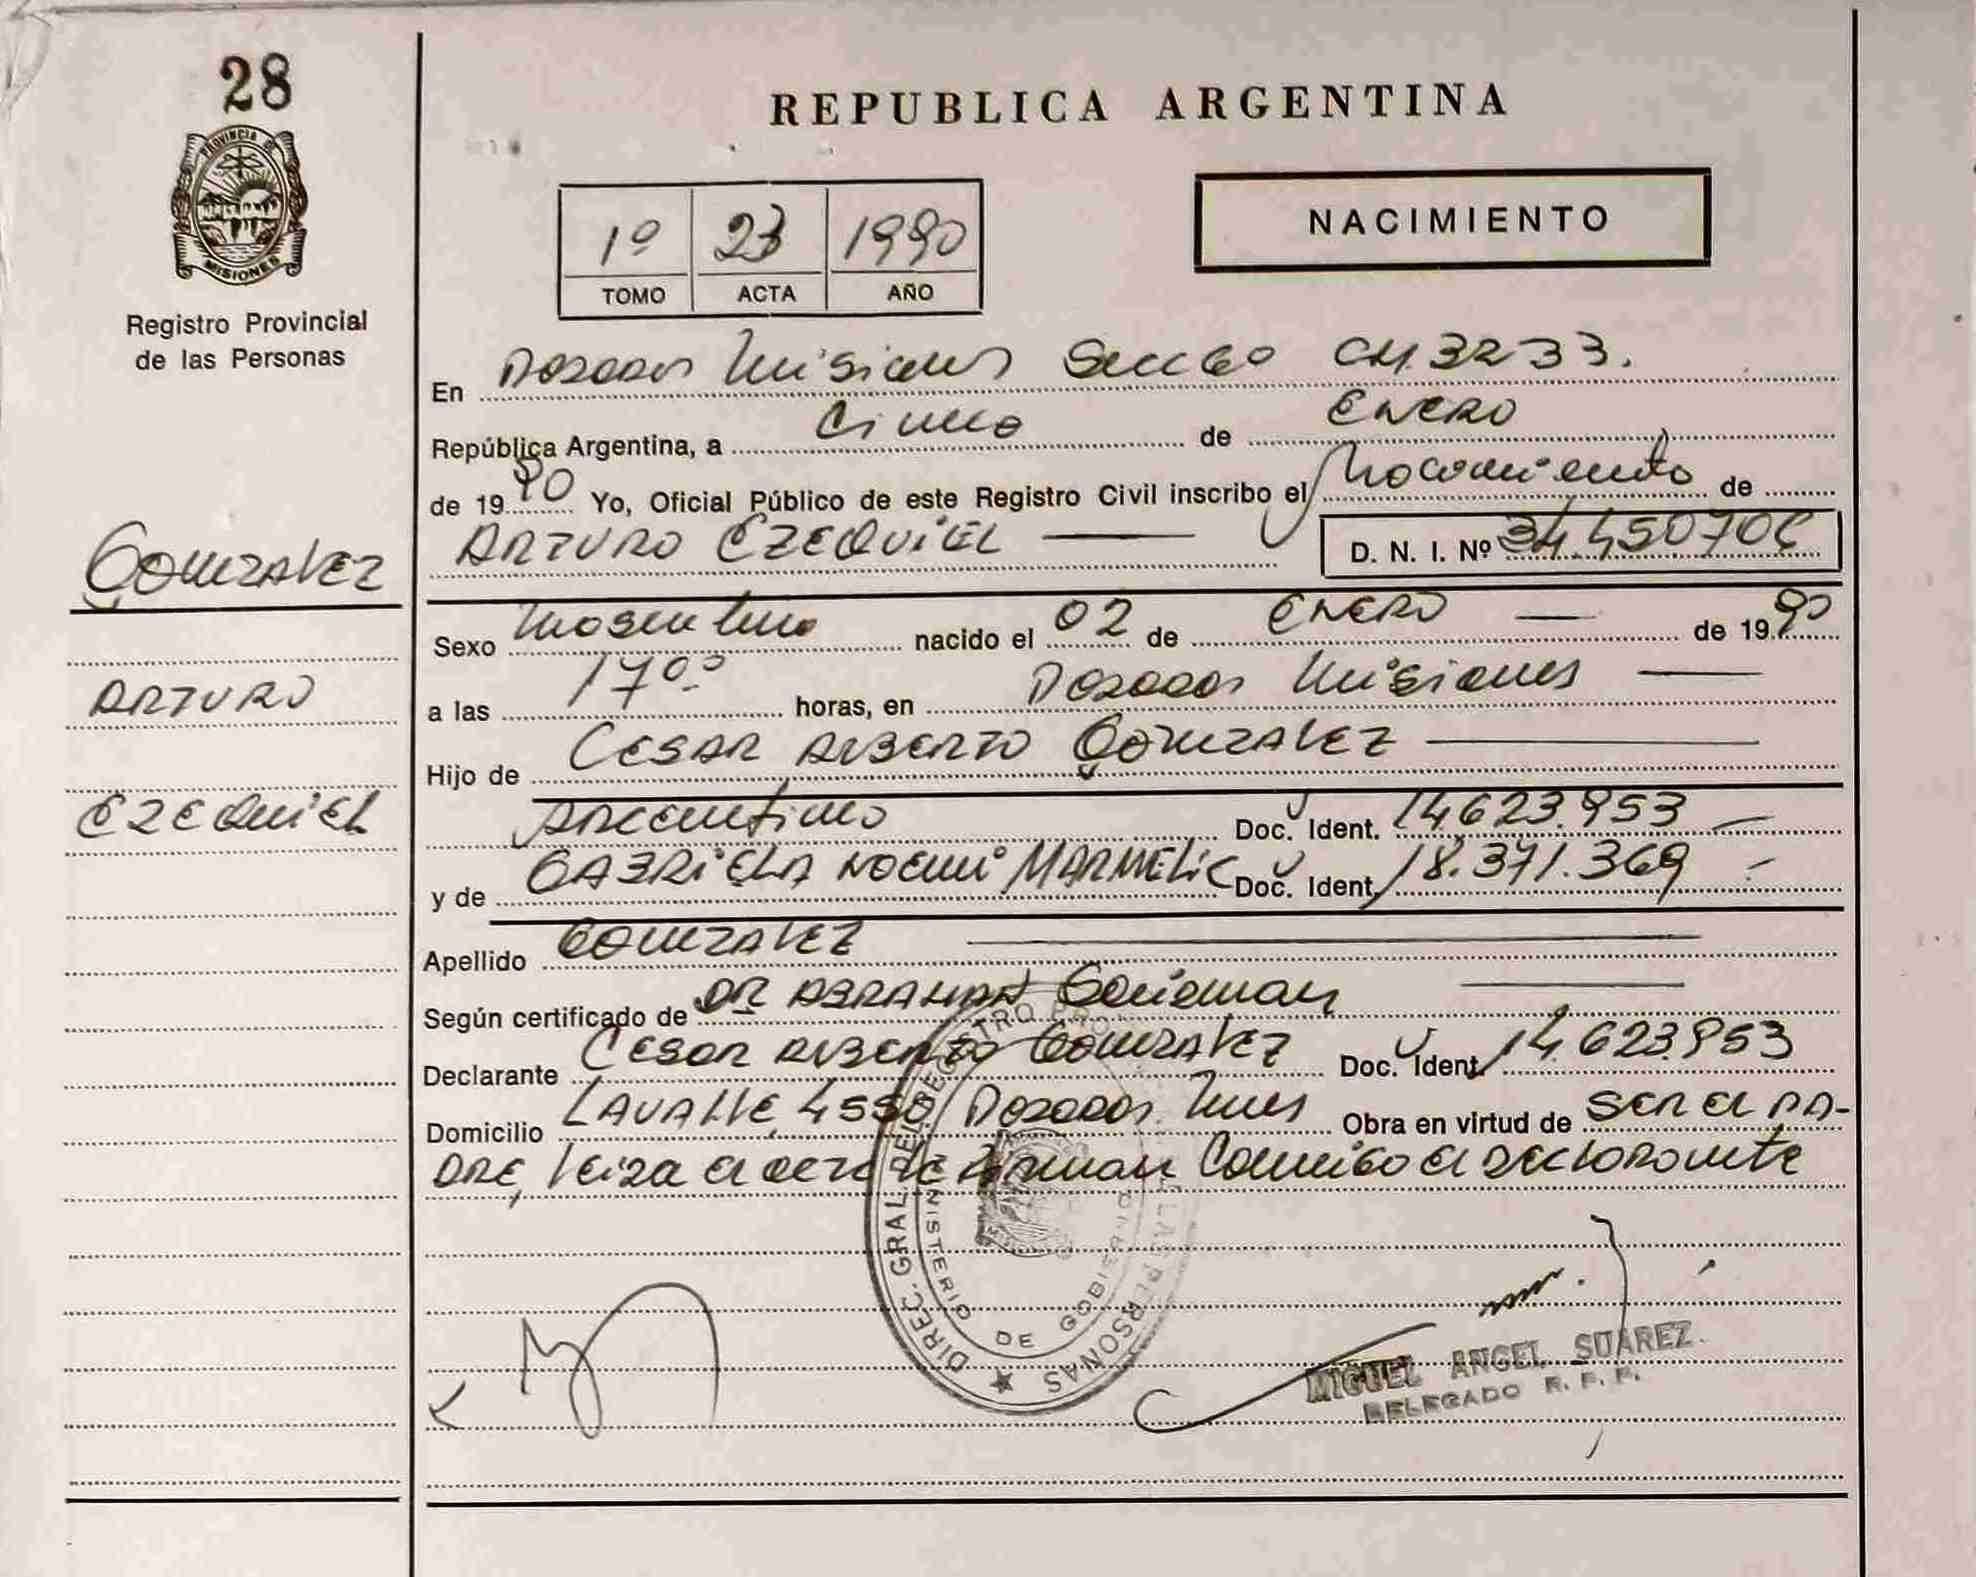 28
PROVINCIA DE
MISIONES
Registro Provincial
de las Personas
REPUBLICA ARGENTINA
NACIMIENTO
1º 23 1990
TOMO ACTA AÑO
En Posadas Misiones Secc 3233.
República Argentina, a Cinco de ENERO
de 1990 Yo, Oficial Público de este Registro Civil inscribo el Nacimiento de
ARTURO EZEQUIEL
D. N. I. Nº 34.450706
GONZALEZ
ARTURO
EZEQUIEL
Sexo Masculino nacido el 02 de ENERO de 1990
a las 17º horas, en Posadas Misiones
Hijo de CESAR ALBERTO GONZALEZ
ARGENTINO Doc. Ident. 14623.953
y de GABRIELA NOEMI MARMELIC Doc. Ident. 18.371.369
Apellido GONZALEZ
Según certificado de DR ABRAHAN
Declarante CESAR ALBERTO GONZALEZ Doc. Ident. 14.623.953
Domicilio LAVALLE 4550 Posadas Mnes Obra en virtud de SER EL PA-
DRE, leida el acta la firman Conmigo el declarante
DIREC. GRAL. DEL REGISTRO PRO DE LAS PERSONAS
MINISTERIO DE GOBIERNO
MIGUEL ANGEL SUAREZ
DELEGADO R. P. P.